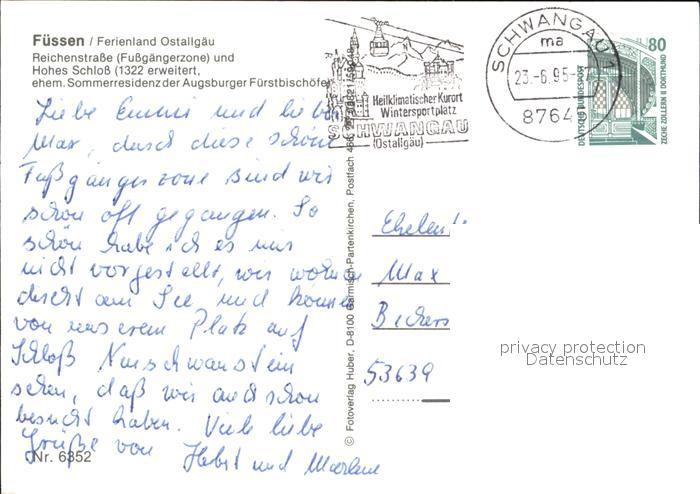 Füssen / Ferienland Ostallgäu
Reichenstraße (Fußgängerzone) und
Hohes Schloß (1322 erweitert,
ehem. Sommerresidenz der Augsburger Fürstbischöfe)
Liebe Emmi und lieber
Max, durch diese schöne
Fußgängerzone sind wir
schon oft gegangen. So
schön habe ich es mir
nicht vorgestellt, wir wohnen
direkt am See und können
von unserem Platz auf
Schloß Neuschwanstein
sehen, daß wir auch schon
besucht haben. Viele liebe
Grüße von
Nr. 6352
Herbst und Marlene
© Fotoverlag Huber, D-8100 Garmisch-Partenkirchen, Postfach
Heilklimatischer Kurort
Wintersportplatz
SCHWANGAU
(Ostallgäu)
SCHWANGAU 1
ma
23.-6.95-
8764
80
DEUTSCHE BUNDESPOST
ZECHE ZOLLERN II DORTMUND
Eheleu!
Max
Beckers
53639
privacy protection
Datenschutz